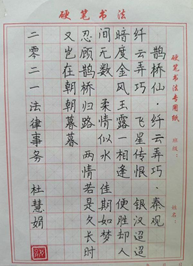 硬笔书法
硬笔书法专用纸
鹊桥仙·纤云弄巧·秦观
纤云弄巧 飞星传恨 银汉迢迢
暗度金风玉露一相逢 便胜却人
间无数 柔情似水 佳期如梦
忍顾鹊桥归路 两情若是久长时
又岂在朝朝暮暮
二零二一法律事务 杜慧娟